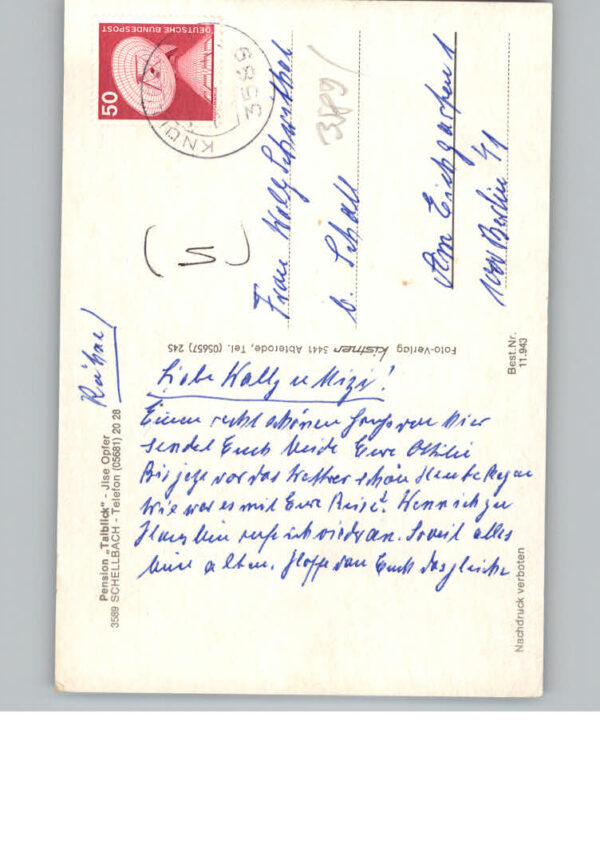 Pension „Talblick“ - Jlse Opfer
3589 SCHELLBACH - Telefon (05681) 20 28
Liebe Wally u Mizi!
Einen recht schönen Gruß von hier
sendet Euch beide Eure Ottilie
Bis jetz war das Wetter schön Heute Regen
Wie war es mit Eure Reise? Wenn ich zu
Haus bin rufe ich wieder an. Soweit alles
beim alten. Hoffe von Euch dasgleiche
Foto-Verlag kistner 3441 Abterode, Tel. (05657) 245
DEUTSCHE BUNDESPOST
50
3589
KNÜ
3891
(5)
Frau Wally
b. Schall
Am Eichgarten 1
1000 Berlin 41
Best.Nr.
11.943
Nachdruck verboten